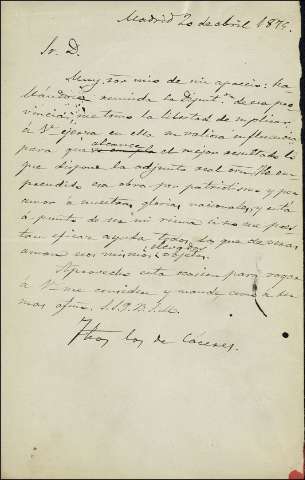 Madrid 20 de abril 1874.
Sr. D.
Muy Sor mio de mi aprecio: ha-
llándose reunida la Diput.on de esa pro-
vincia, me tomo la libertad de suplicar
á V. ejerza en ella su valiosa influencia
para que alcance el mejor resultado lo
que dispone la adjunta real orn. He em-
prendido esa obra por patriotismo y por
amor á nuestras glorias nacionales, y está
á punto de ser mi ruina si no me pres-
tan eficaz ayuda todos los que de veras
amen esos mismos elevados objetos.
Aprovecho esta ocasion para rogar
á V. me considere y mande como á su
mas afmo. S.S.Q.B.S.M.
de Cáceres.